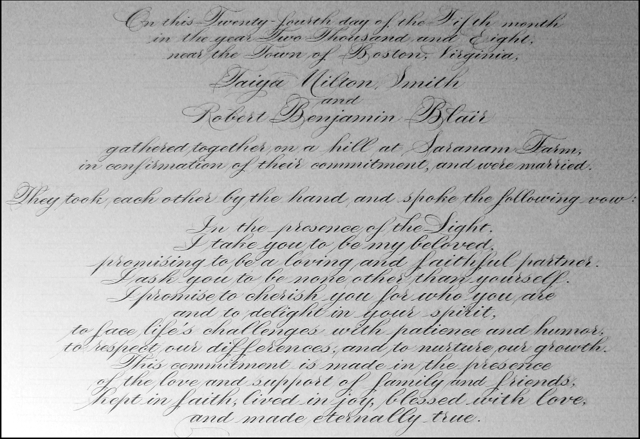 On this Twenty-fourth day of the Fifth month
in the year Two Thousand and Eight,
near the Town of Boston, Virginia,
Taiya Milton Smith
and
Robert Benjamin Blair
gathered together on a hill at Saranam Farm,
in confirmation of their commitment, and were married.
They took each other by the hand and spoke the following vow:
In the presence of the Light,
I take you to be my beloved,
promising to be a loving and faithful partner.
I ask you to be none other than yourself.
I promise to cherish you for who you are
and to delight in your spirit,
to face life's challenges with patience and humor,
to respect our differences, and to nurture our growth.
This commitment is made in the presence
of the love and support of family and friends,
kept in faith, lived in joy, blessed with love,
and made eternally true.